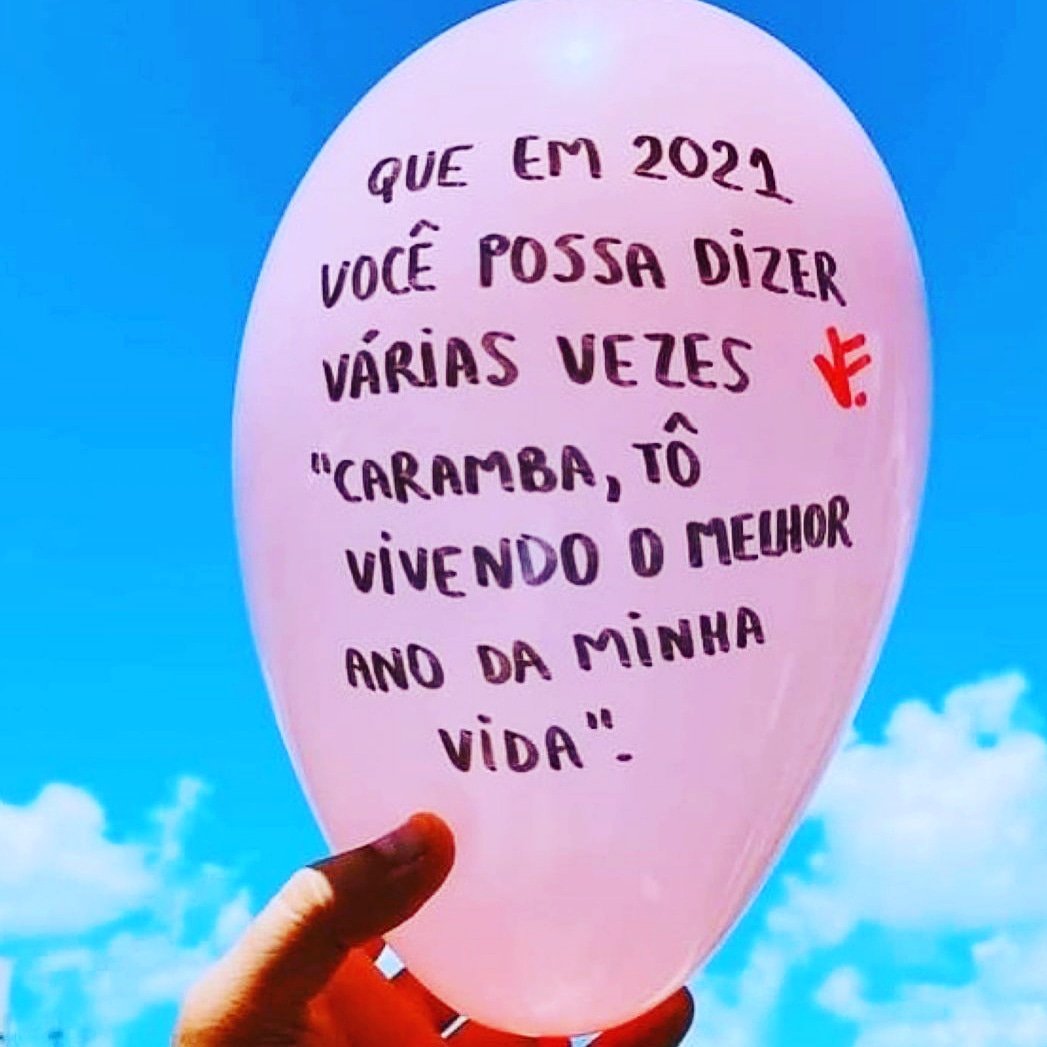 QUE EM 2021
VOCÊ POSSA DIZER
VÁRIAS VEZES
"CARAMBA, TÔ
VIVENDO O MELHOR
ANO DA MINHA
VIDA".